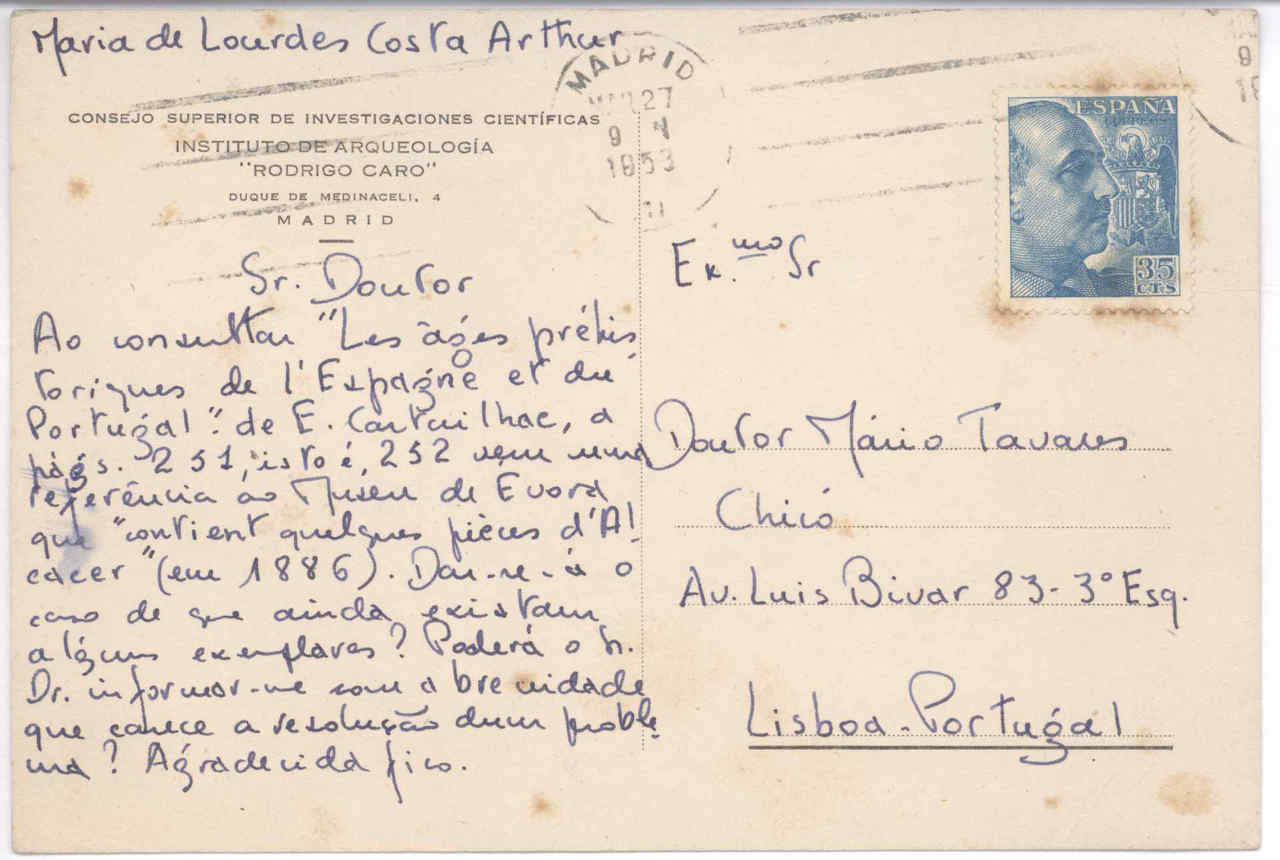 Maria de Lourdes Costa Arthur
CONSEJO SUPERIOR DE INVESTIGACIONES CIENTÍFICAS
INSTITUTO DE ARQUEOLOGÍA
"RODRIGO CARO"
DUQUE DE MEDINACELI, 4
MADRID
Sr. Doutor
Ao consultar "Les âges préhis
toriques de l'Espagne et du
Portugal". de E. Cartailhac, a
págs. 251, isto é, 252 vem uma
referência ao Museu de Evora
que "contient quelques pièces d'Al
cacer" (em 1886). Dar-se-á o
caso de que ainda existam
alguns exemplares? Poderá o Sr.
Dr. informar-me com a brevidade
que carece a resolução dum proble
ma? Agradecida fico.
MADRID
27
9
1953
ESPAÑA
CORREOS
35
CTS
Ex.mo Sr
Doutor Mário Tavares
Chicó
Av. Luis Bivar 83-3º Esq.
Lisboa-Portugal